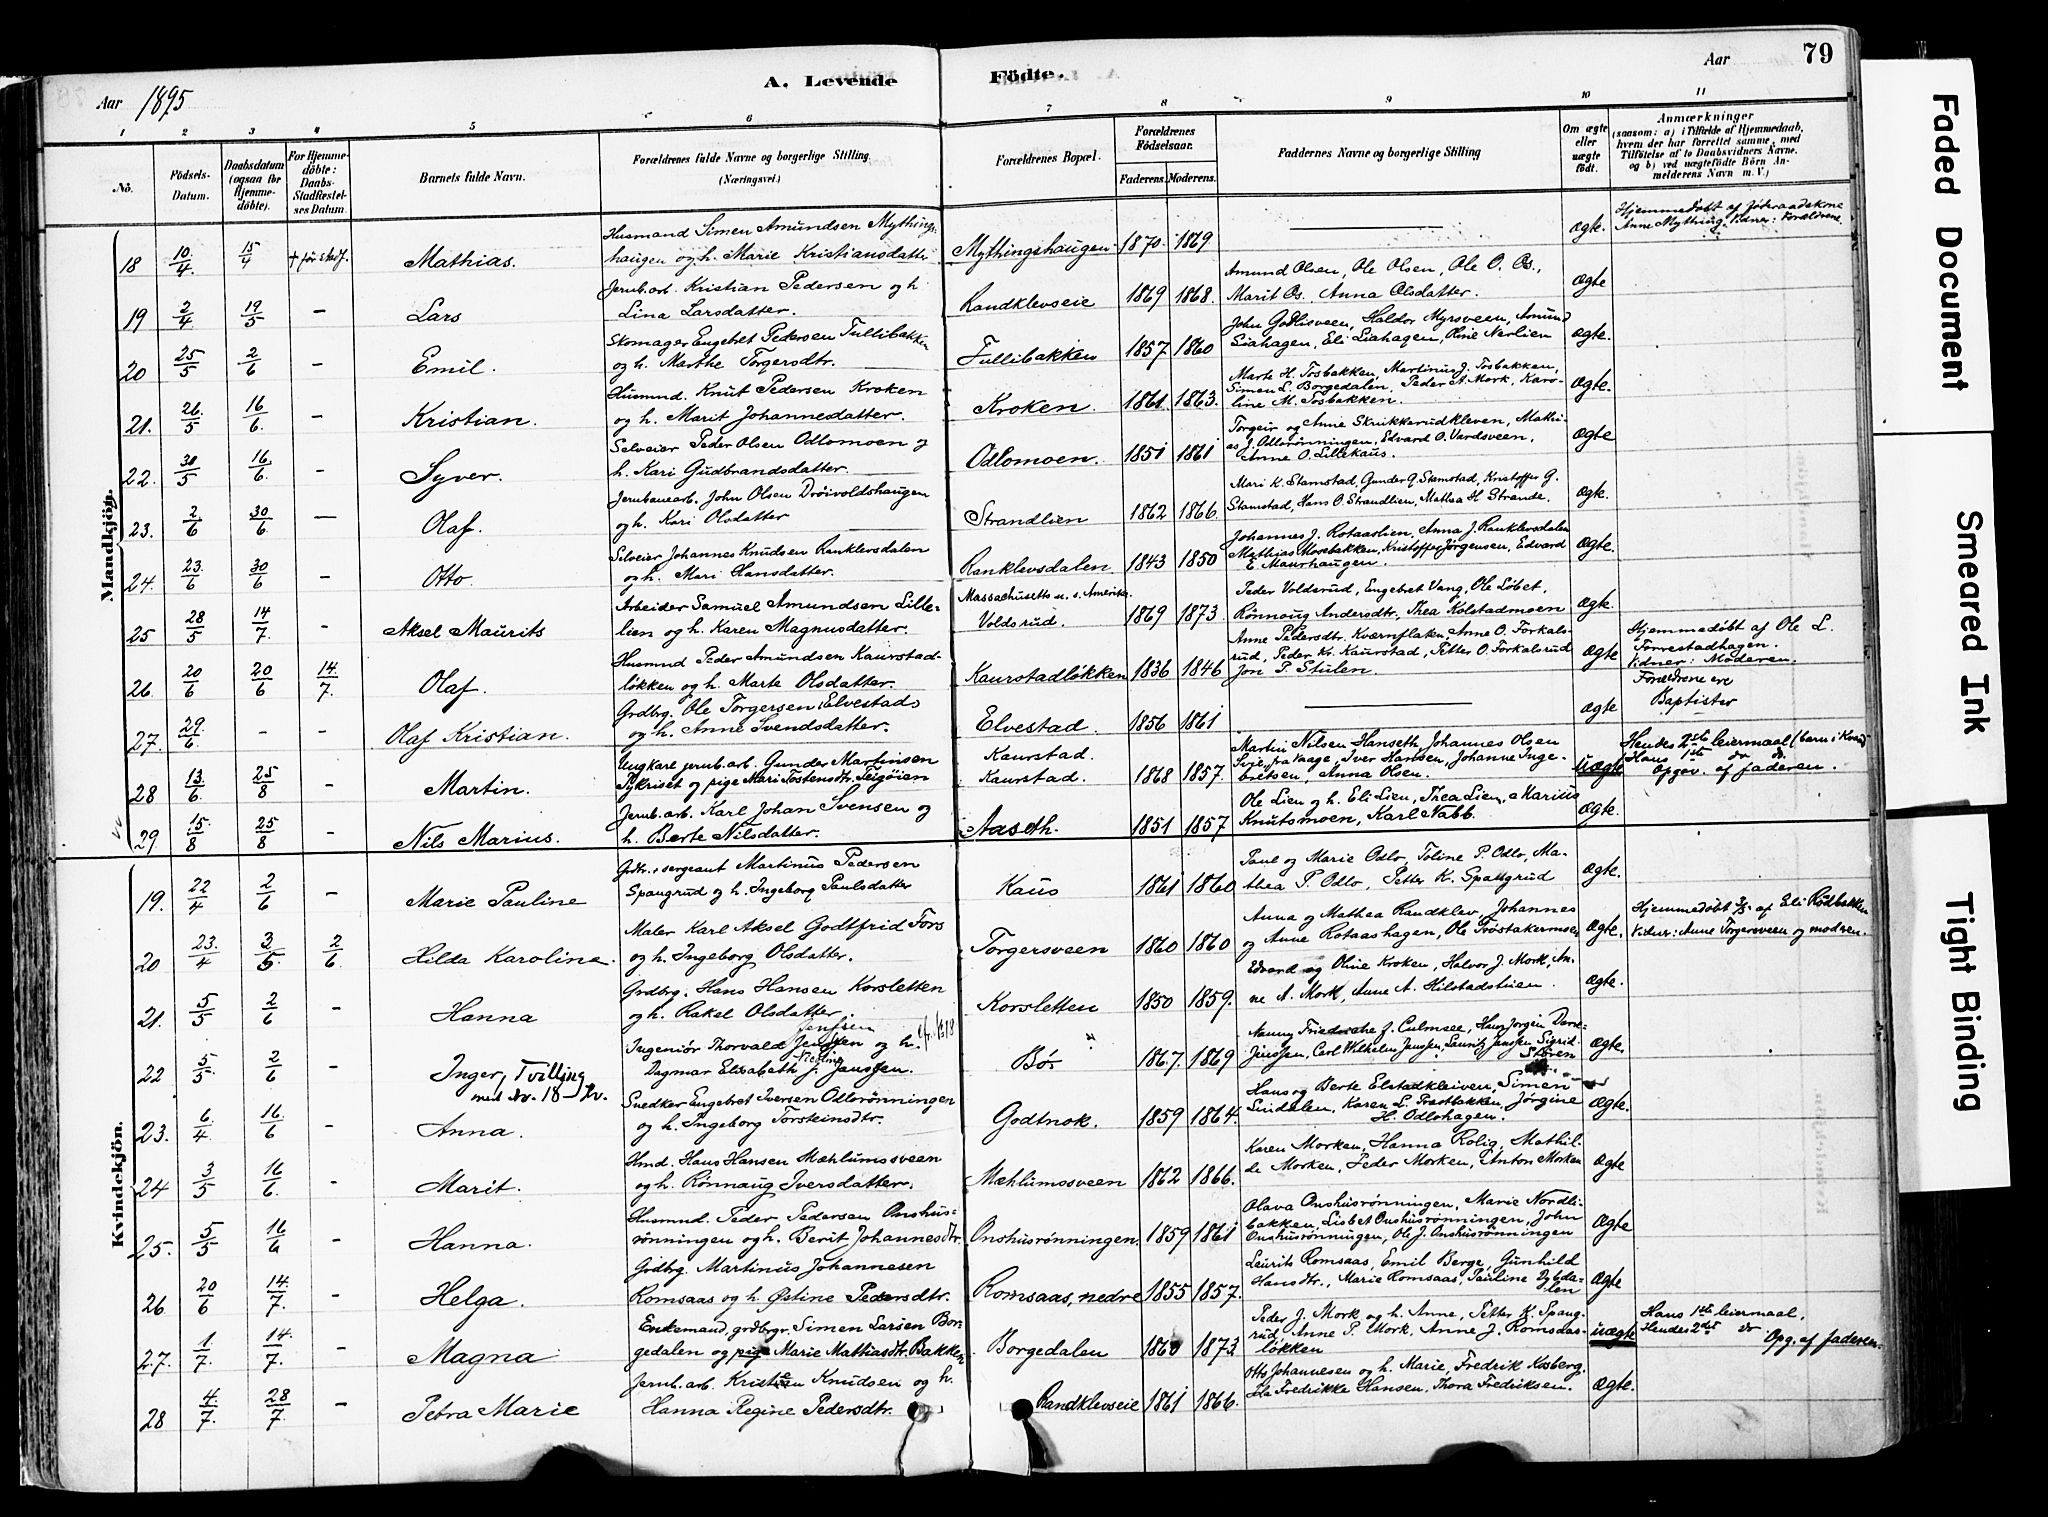 79
A. Levende Födte.
Aar 1895
Aar
1 2 3 4 5 6 7 8 9 10 11
No.
Födsels-Datum.
Daabsdatum (ogsaa for Hjemmedöbte).
For Hjemmedöbte: Daabs-Stadfæstelses Datum.
Barnets fulde Navn.
Forældrenes fulde Navne og borgerlige Stilling. (Næringsvei.)
Forældrenes Bopæl.
Forældrenes Födselsaar.
Faderens. Moderens.
Faddernes Navne og borgerlige Stilling
Om ægte eller uægte födt.
Anmærkninger
(saasom: a) i Tilfælde af Hjemmedaab, hvem der har forrettet samme, med Tilföielse af to Daabsvidners Navne. og b) ved uægtefödte Börn Anmelderens Navn m. V.)
Mandkjön.
18 10/4 15/4 + før stadf. Mathias. Husmand Simen Amundsen Mythingshaugen og h. Marie Kristiansdatter Mythingshaugen 1870 1869 — ægte. Hjemmedøbt af Jøderaadskone Anne Mything. Vidner: Forældrene
19 2/4 19/5 – Lars Jernb.arb. Kristian Pedersen og h. Lina Larsdatter. Randklevseie 1869 1868. Amund Olsen, Ole Olsen, Ole O. Os., Marit Os. Anna Olsdatter. Ægte
20 25/5 2/6 – Emil. Skomager Engebret Pedersen Tullibakken og h. Marthe Torgersdtr. Tullibakken 1857 1860 John Godlisveen, Haldor Myrsveen, Amund Liahagen, Eli Liahagen, Oline Nerlien ægte.
21. 26/5 16/6 – Kristian. Husmnd. Knut Pedersen Kroken og h. Marit Johannesdatter. Kroken. 1861 1863. Marte H. Tosbakken, Martinus J. Tosbakken, Simen L. Borgedalen, Peder A. Mork, Karoline M. Tosbakken. Ægte
22. 30/5 16/6 – Syver. Selveier Peder Olsen Odlomoen og h. Kari Gudbrandsdatter. Odlomoen. 1851 1861 Torgeir og Anne Skrukkerudkleven, Mathias J. Odlorønningen, Edvard O. Vardsveen, Anne O. Lillekaus. Ægte
23. 2/6 30/6 — Olaf. Jernbanearb. John Olsen Drøivoldshaugen og h. Kari Olsdatter Strandlien 1862 1866. Mari K. Stamstad, Gunder G. Stamstad, Kristoffer G. Stamstad, Hans O. Strandlien, Mathea H. Strande. Ægte.
24. 23/6 30/6 – Otto. Selveier Johannes Knudsen Ranklevsdalen og h. Mari Hansdatter. Ranklevsdalen 1843 1850 Johannes J. Rotaaslien, Anna J. Ranklevsdalen Mathias Morebakken, Kristoffer Jørgensen, Edvard E. Maurhaugen. Ægte.
25 28/5 14/7 – Aksel Maurits Arbeider Samuel Amundsen Lillelien og h. Karen Magnusdatter. Massachusetts u. s. Amerika. Voldsrud. 1869 1873 Peder Voldsrud, Engebret Vang, Ole Løbet, Rønnoug Andersdtr, Thea Kolstadmoen ægte.
26. 20/6 20/6 14/7. Olaf. Husmnd Peder Amundsen Kaurstadløkken og h. Marte Olsdatter. Kaurstadløkken 1836 1846 Anne Pedersdtr. Kværnflaten, Anne O. Forkalsrud, Peder Kr. Kaurstad, Petter O. Forkalsrud Jon P. Stulen. ægte Hjemmedøbt af Ole L. Forrestadhagen. Vidner: Moderen.
27. 29/6. – – Olaf Kristian. Grdbrg. Ole Torgersen Elvestad og h. Anne Svendsdatter. Elvestad. 1856 1861 — ægte Forældrene ere Baptister
28 13/6. 25/8 – Martin. Ungkarl jernb.arb. Gunder Martinsen Tykriset og pige Mari Tostensdtr. Teigøien Kaurstad. Kaurstad. 1868 1857. Martin Nilsen Hanseth, Johannes Olsen Sørje fra Vaage, Iver Hansen, Johanne Ingebretsen, Anna Olsen. uægte Hendes 2det leiermaal (barn i Kvind Hans 1ste do do. Opgev. af faderen.
29. 15/8 25/8 – Nils Marius. Jernb. arb. Karl Johan Svensen og h. Berte Nilsdatter. Aaseth. 1851 1857 Ole Lien og h. Eli Lien, Thea Lien, Marius Knutsmoen, Karl Nabb. Ægte.
Kvindekjön.
19. 22/4 2/6 – Marie Pauline Grdbr., sergeant Martinus Pedersen Spangrud og h. Ingeborg Paulsdatter Kaus 1861 1860 Paul og Marie Odlo, Toline P. Odlo, Mathea P. Odlo, Petter K. Spangrud ægte.
20 23./4 3/5. 2/6 Hilda Karoline. Maler Karl Aksel Godtfrid Fors og h. Ingeborg Olsdatter. Torgersveen 1860 1860 Anna og Mathea Randklev, Johannes og Anne Rotaashagen, Ole Trøstakermoen Ægte. Hjemmedøbt 3/5. af Eli Rødbakken Vidner: Anne Torgersveen og modren.
21. 5/5 2/6 – Hanna Grdbrg. Hans Hansen Korsletten og h. Rakel Olsdatter. Korsletten 1850 1859. Edvard og Oline Kroken, Halvor J. Mork, Anne A. Mork, Anne A. Hilstadstuen. Ægte.
22 5/5. 2/6 – Inger, Tvilling med No. 18 Ingeniør Thorvald Jenssen og h. Dagmar Elisabeth f. Janssen. Bør 1867. 1869 Nanny Friedriche f. Culmsee, Hans Jørgen Darre-Jenssen, Carl Wilhelm Janssen, Lauritz Janssen Sigrid Støren Ægte.
23. 6/4 16/6 – Anna. Snedker Engebret Iversen Odlorønningen og h. Ingeborg Torsteinsdtr. Godtnok. 1859 1864. Hans og Berte Elstadkleiven, Simen Lindalen, Karen L. Præstbakken, Jørgine H. Odlohagen. Ægte.
24 3/5 16/6. – Marit. Hmd. Hans Hansen Mæhlumssveen og h. Rønnaug Iversdatter. Mæhlumssveen 1862 1866. Karen Morken, Hanna Rolig, Mathilde Morken, Peder Morken, Anton Morken Ægte
25. 5/5 16/6 – Hanna. Husmnd. Peder Pedersen Onshusrønningen og h. Berit Johannesdtr. Onshusrønningen. 1859 1861 Olava Onshusrønningen, Marie Nordlibakken, Lisbet Onshusrønningen, John Onshusrønningen, Ole J. Onshusrønningen Ægte
26 20/6 14/7. – Helga. Grdbrg. Martinus Johannesen Romsaas og h. Østine Pedersdtr. Romsaas, nedre 1855 1857. Laurits Romsaas, Emil Berge, Gunhild Hansdtr., Marie Romsaas, Pauline Dybdalen Ægte
27. 1/7. 14/7. – Magna Enkemand, grdbrgr. Simen Larsen Borgedalen og pige Marie Mathiasdtr. Bakken Borgedalen 1860 1873 Peder J. Mork og h. Anne, Petter K. Spangrud, Anne P. Mork, Anne J. Romsaasløkken uægte Hans 1ste leiermaal, Hendes 2det do Opg. af faderen.
28 4/7. 28/7. – Petra Marie Jernb. arb. Kristian Knudsen og h. Hanna Regine Pedersdtr. Randklevseie 1861 1866. Otto Johannesen og h. Marie, Fredrik Kosberg. Ida Fredrikke Hansen, Thora Fredriksen. Ægte.
Faded Document
Smeared Ink
Tight Binding